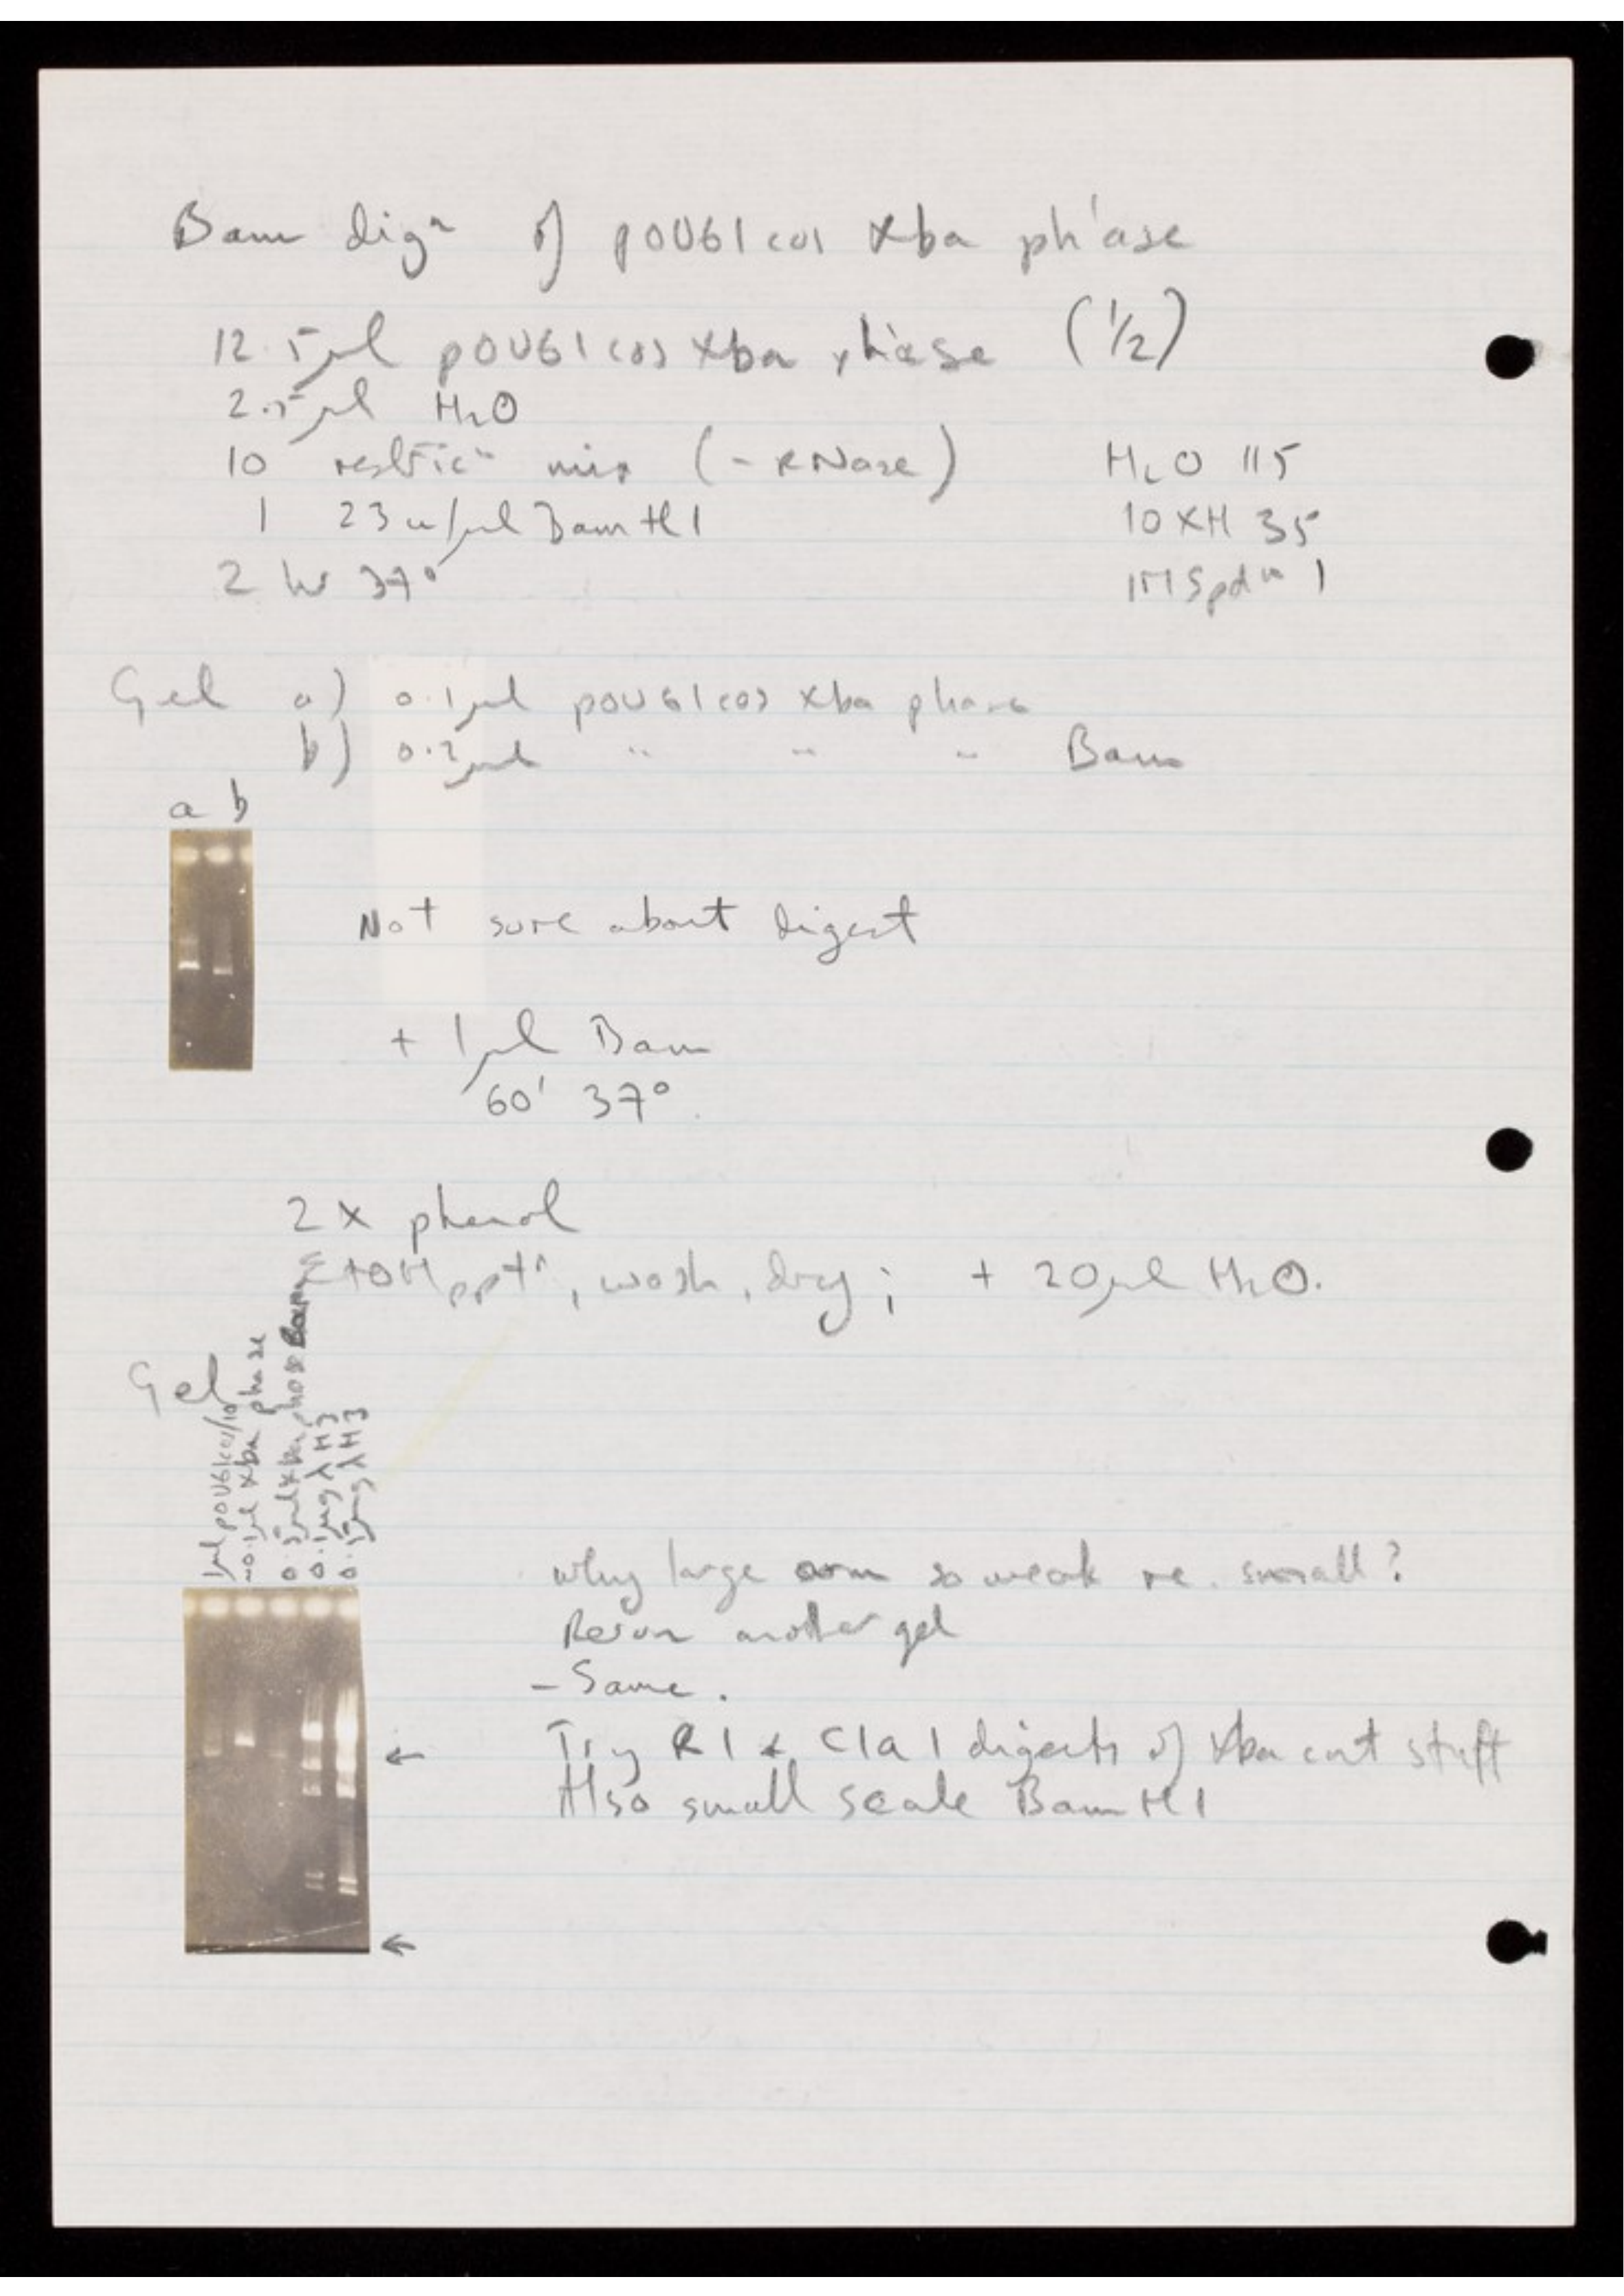 Bam dig^n of pOU61cos Xba ph'ase
12.5µl pOU61cos Xba ph'ase (1/2)
2.5µl H2O
10 restric^n mix (-RNase) H2O 115
1 23u/µl BamH1 10XH 35
2 hr 37° 1M Spd^n 1
Gel a) 0.1µl pOU61cos Xba phase
b) 0.2µl " " " Bam
a b
Not sure about digest
+ 1µl Bam
60' 37°
2 x phenol
EtOH ppt^n, wash, dry; + 20µl H2O.
Gel
1µl pOU61cos/10
~0.1µl Xba phase
0.5µl Xba phase Bam
0.1µg λH3
0.5µg λH3
Why large arm so weak re. small?
Rerun another gel
- Same.
←
Try R1 & Cla1 digests of Xba cut stuff
Also small scale BamH1
←